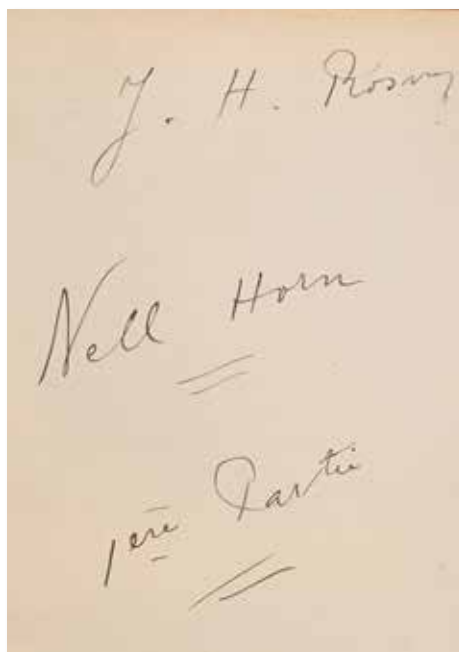 J. H. Rosny
Nell Horn
1ère Partie